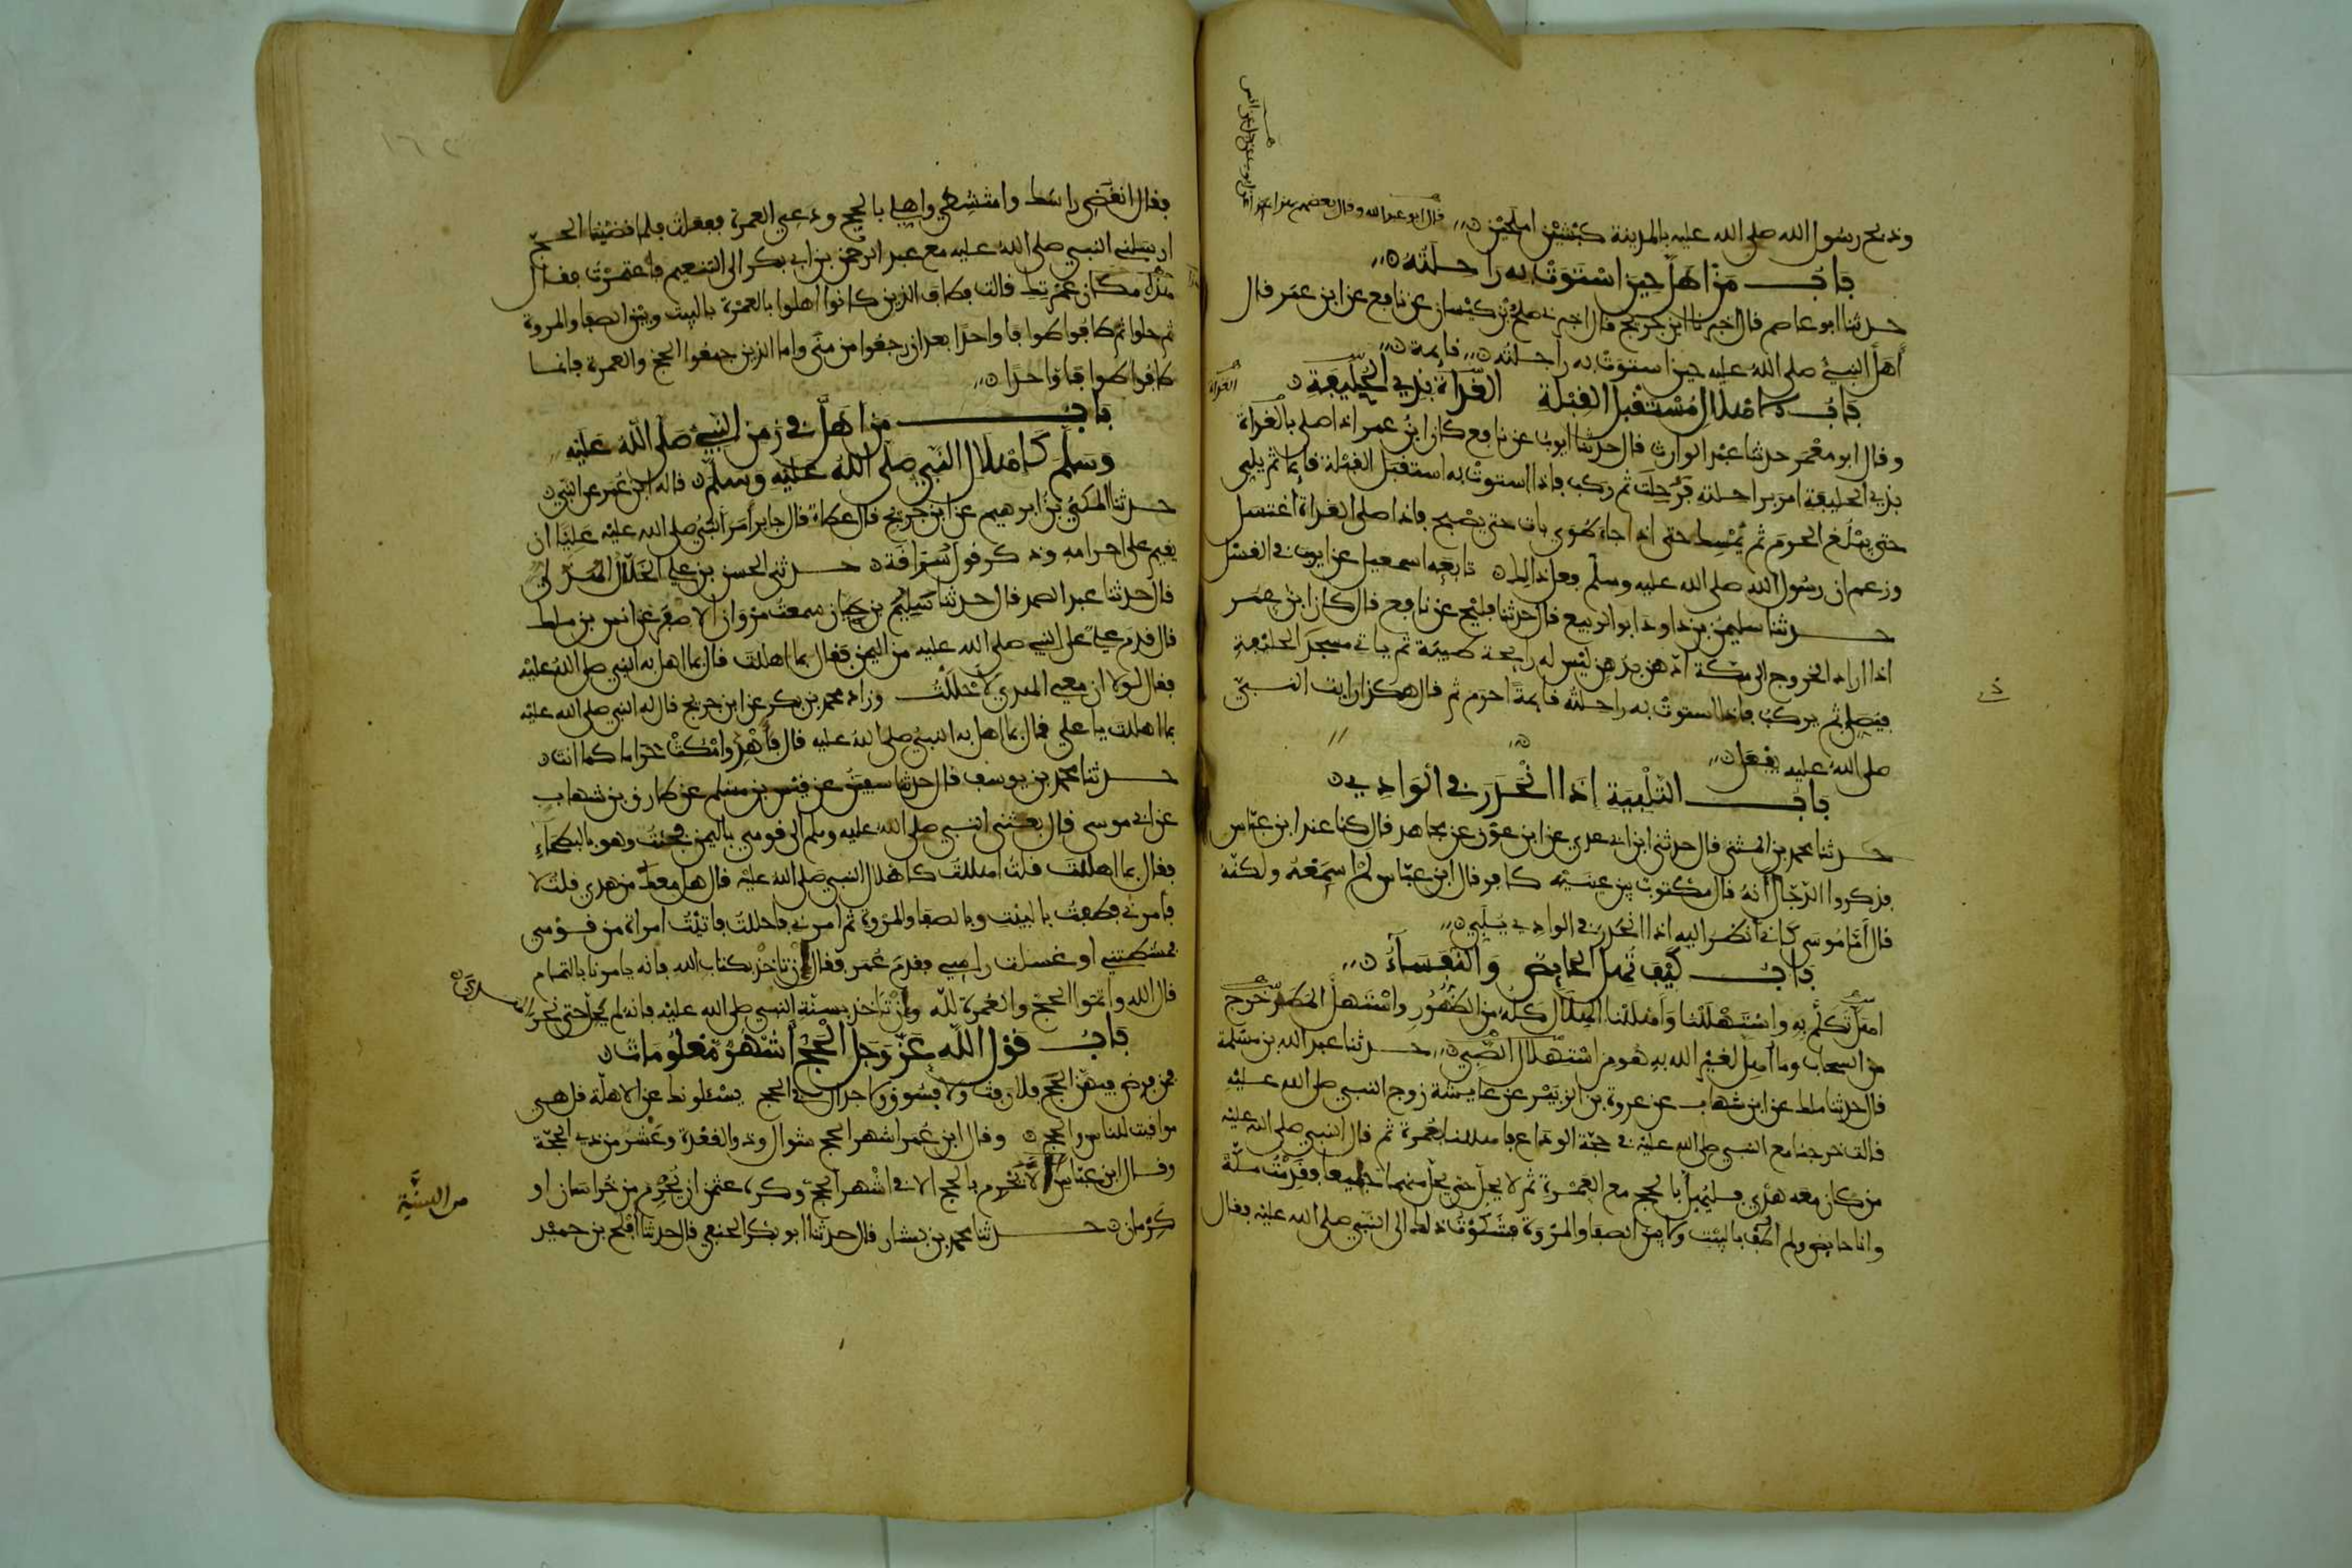 وذبح رسول الله صلى الله عليه بالمدينة كبشين املحين قال ابو عبد الله وقال بعضهم هذا عن
باب من اهل حين استوت به راحلته
حدثنا ابو عاصم قال اخبرنا ابن جريج قال اخبرني صلح بن كيسان عن نافع عن ابن عمر قال
اهل النبي صلى الله عليه حين استوت به راحلته قايمة
باب الاهلال مستقبل القبلة الغداة بذي الحليفة
وقال ابو معمر حدثنا عبد الوارث قال حدثنا ايوب عن نافع كان ابن عمر اذا صلى بالغداة
بذي الحليفة امر براحلته فرحلت ثم ركب فاذا استوت به استقبل القبلة قايما ثم يلبي
حتى يبلغ الحرم ثم يمسك حتى اذا جاء طوى بات حتى يصبح فاذا صلى الغداة اغتسل
وزعم ان رسول الله صلى الله عليه وسلم فعل ذلك تابعه اسمعيل عن ايوب في الغسل
حدثنا سليمن بن داود ابو الربيع قال حدثنا فليح عن نافع قال كان ابن عمر
اذا اراد الخروج الى مكة ادهن بدهن ليس له رايحة طيبة ثم ياتي مسجد الحليفة
فيصلي ثم يركب فاذا استوت به راحلته قايمة احرم ثم قال هكذا رايت النبي
صلى الله عليه يفعل
باب التلبية اذا انحدر في الوادي
حدثنا محمد بن المثنى قال حدثني ابن ابي عدي عن ابن عون عن مجاهد قال كنا عند ابن عباس
فذكروا الدجال انه قال مكتوب بين عينيه كافر قال ابن عباس لم اسمعه ولكنه
قال اما موسى كاني انظر اليه اذا انحدر في الوادي يلبي
باب كيف تهل الحايض والنفساء
اهل تكلم به واستهللنا واهللنا الهلال كله من الظهور واستهل المطر خرج
من السحاب وما اهل لغير الله به هو من استهلال الصبي حدثنا عبد الله بن مسلمة
قال حدثنا ملك عن ابن شهاب عن عروة بن الزبير عن عايشة زوج النبي صلى الله عليه
قالت خرجنا مع النبي صلى الله عليه في حجة الوداع فاهللنا بعمرة ثم قال النبي صلى الله عليه
من كان معه هدي فليهل بالحج مع العمرة ثم لا يحل حتى يحل منهما جميعا فقدمت مكة
وانا حايض ولم اطف بالبيت ولا بين الصفا والمروة فشكوت ذلك الى النبي صلى الله عليه فقال
الغداة
١٦٢
فقال انقضي راسك وامتشطي واهلي بالحج ودعي العمرة ففعلت فلما قضينا الحج
ارسلني النبي صلى الله عليه مع عبد الرحمن بن ابي بكر الى التنعيم فاعتمرت فقال
هذه مكان عمرتك قالت فطاف الذين كانوا اهلوا بالعمرة بالبيت وبين الصفا والمروة
ثم حلوا ثم طافوا طوافا واحدا بعد ان رجعوا من منى واما الذين جمعوا الحج والعمرة فانما
طافوا طوافا واحدا
باب من اهل في زمن النبي صلى الله عليه
وسلم كاهلال النبي صلى الله عليه وسلم قاله ابن عمر عن النبي
حدثنا المكي بن ابرهيم عن ابن جريج قال عطاء قال جابر امر النبي صلى الله عليه عليا ان
يقيم على احرامه وذكر قول سراقة حدثني الحسن بن علي الخلال الهذلي
قال حدثنا عبد الصمد قال حدثنا سليم بن حيان سمعت مروان الاصفر عن انس بن ملك
قال قدم علي على النبي صلى الله عليه من اليمن فقال بما اهللت قال بما اهل به النبي صلى الله عليه
فقال لولا ان معي الهدي لاحللت وزاد محمد بن بكر عن ابن جريج قال له النبي صلى الله عليه
بما اهللت يا علي قال بما اهل به النبي صلى الله عليه قال فاهد وامكث حراما كما انت
حدثنا محمد بن يوسف قال حدثنا سفين عن قيس بن مسلم عن طارق بن شهاب
عن ابي موسى قال بعثني النبي صلى الله عليه وسلم الى قومي باليمن فجئت وهو بالبطحاء
فقال بما اهللت قلت اهللت كاهلال النبي صلى الله عليه قال هل معك من هدي قلت لا
فامرني فطفت بالبيت وبالصفا والمروة ثم امرني فاحللت فاتيت امراة من قومي
فمشطتني او غسلت راسي فقدم عمر فقال ان ناخذ بكتاب الله فانه يامرنا بالتمام
قال الله واتموا الحج والعمرة لله وان ناخذ بسنة النبي صلى الله عليه فانه لم يحل حتى نحر
الهدي
باب قول الله عز وجل الحج اشهر معلومات
فمن فرض فيهن الحج فلا رفث ولا فسوق ولا جدال في الحج يسئلونك عن الاهلة قل هي
مواقيت للناس والحج وقال ابن عمر اشهر الحج شوال وذو القعدة وعشر من ذي الحجة
وقال ابن عباس الا تحرم بالحج الا في اشهر الحج وكره عثمن ان يحرم من خراسان او
من السنة
كرمان حدثنا محمد بن بشار قال حدثنا ابو بكر الحنفي قال حدثنا افلح بن حميد